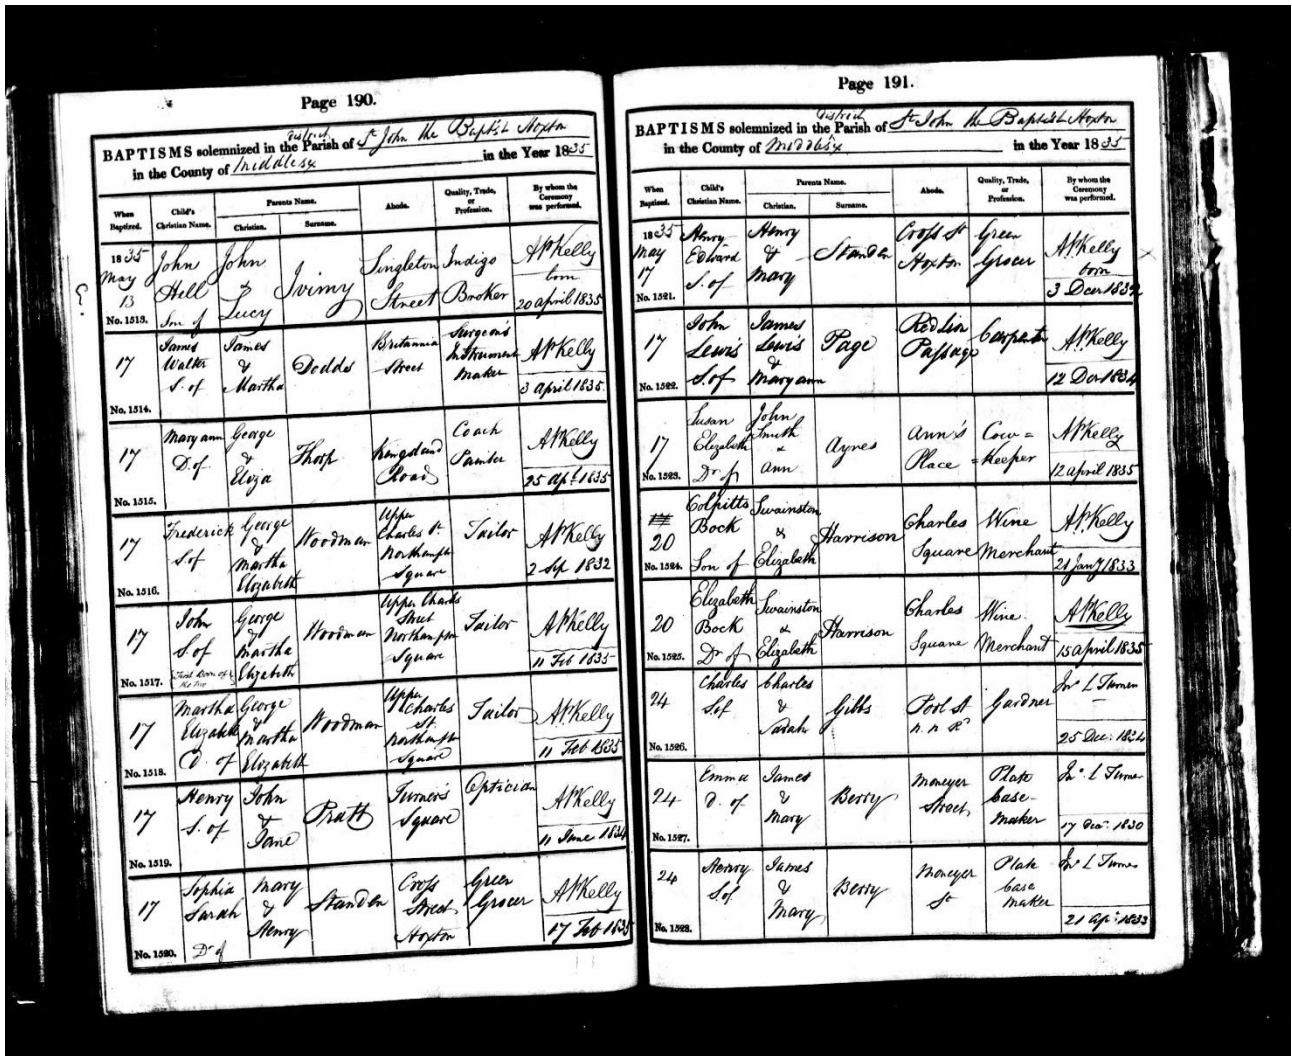 Page 190.
BAPTISMS solemnized in the district Parish of St John the Baptist Hoxton
in the County of Middlesex in the Year 1835
When Baptized.
Child's Christian Name.
Parents Name.
Christian.
Surname.
Abode.
Quality, Trade, or Profession.
By whom the Ceremony was performed.
1835
May
13
No. 1513.
John
Hill
Son of
John
&
Lucy
Ivimy
Singleton
Street
Indigo
Broker
AP Kelly
born
20 April 1835
17
No. 1514.
James
Walter
S. of
James
&
Martha
Dodds
Britannia
Street
Surgeon's
Instrument
Maker
AP Kelly
3 April 1835
17
No. 1515.
Mary ann
D. of
George
&
Eliza
Thorp
Kingsland
Road
Coach
Painter
AP Kelly
25 Apl 1835
17
No. 1516.
Frederick
S. of
George
&
Martha
Elizabeth
Woodman
Upper
Charles St
Northampton
Square
Tailor
AP Kelly
2 Sep 1832
17
No. 1517.
John
S of
First Born of
the Two
George
&
Martha
Elizabeth
Woodman
Upper Charles
Street
Northampton
Square
Tailor
AP Kelly
11 Feb 1835
17
No. 1518.
Martha
Elizabeth
D. of
George
&
Martha
Elizabeth
Woodman
Upper
Charles
St
Northampton
Square
Tailor
AP Kelly
11 Feb 1835
17
No. 1519.
Henry
S. of
John
&
Jane
Pratt
Turner's
Square
Optician
AP Kelly
11 June 1834
17
No. 1520.
Sophia
Sarah
Dr of
Mary
&
Henry
Standen
Cross
Street
Hoxton
Green
Grocer
AP Kelly
17 Feb 1835
Page 191.
BAPTISMS solemnized in the district Parish of St John the Baptist Hoxton
in the County of Middlesex in the Year 1835
When Baptized.
Child's Christian Name.
Parents Name.
Christian.
Surname.
Abode.
Quality, Trade, or Profession.
By whom the Ceremony was performed.
1835
May
17
No. 1521.
Henry
Edward
S. of
Henry
&
Mary
Standen
Cross St
Hoxton
Green
Grocer
AP Kelly
born
3 Decr 1832
17
No. 1522.
John
Lewis
S. of
James
Lewis
&
Mary ann
Page
Red Lion
Passage
Carpenter
AP Kelly
12 Decr 1834
17
No. 1523.
Susan
Elizabeth
Dr of
John
Smith
&
Ann
Aynes
Ann's
Place
Cow=
=Keeper
AP Kelly
12 April 1835
20
No. 1524.
Colpitts
Bock
Son of
Swainston
&
Elizabeth
Harrison
Charles
Square
Wine
Merchant
AP Kelly
21 Jany 1833
20
No. 1525.
Elizabeth
Bock
Dr of
Swainston
&
Elizabeth
Harrison
Charles
Square
Wine
Merchant
AP Kelly
15 April 1835
24
No. 1526.
Charles
S. of
Charles
&
Sarah
Gibbs
Pool St
n. n Rd
Gardner
Jno L Turner
25 Dec. 1834
24
No. 1527.
Emma
D. of
James
&
Mary
Berry
Moneyer
Street
Plate
Case-
Maker
Jno L Turner
17 Decr 1830
24
No. 1528.
Henry
S. of
James
&
Mary
Berry
Moneyer
St
Plate
Case
Maker
Jno L Turner
21 Apl 1833